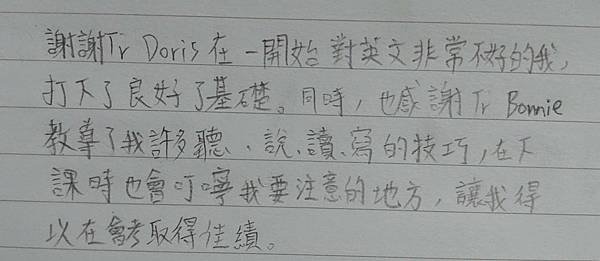 謝謝Tr Doris 在一開始對英文非常不好的我,
打下了良好了基礎。同時,也感謝Tr Bonnie
教導了我許多聽、說、讀、寫的技巧,在下
課時也會叮嚀我要注意的地方,讓我得
以在會考取得佳績。